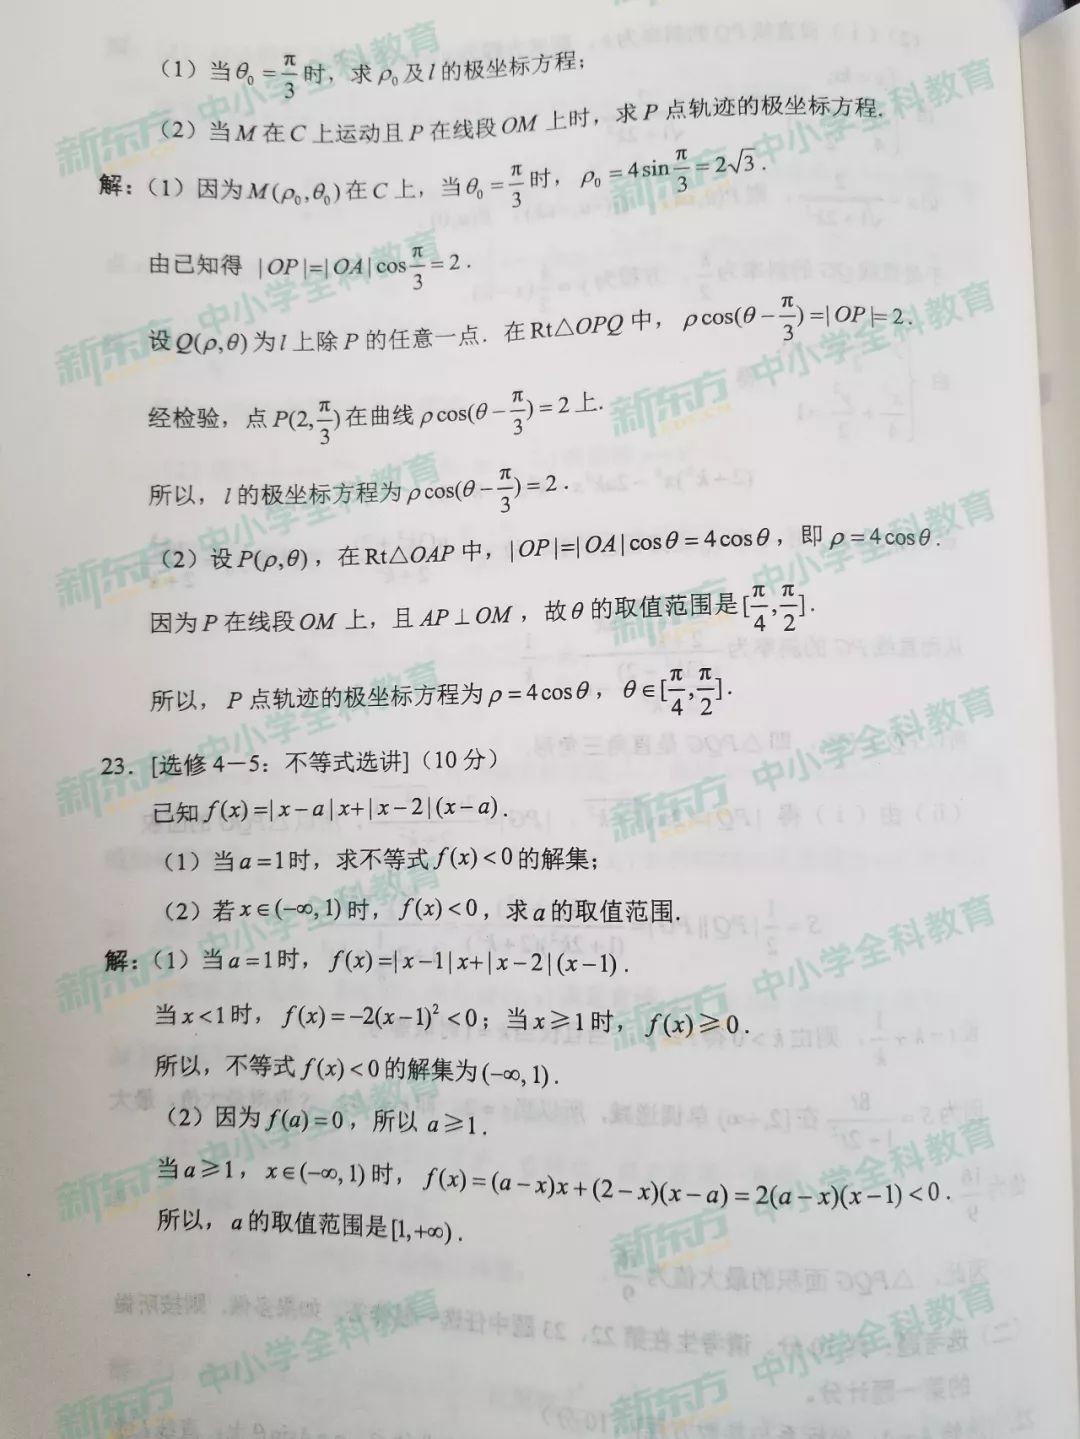 （1）当θ₀=π/3时，求ρ₀及l的极坐标方程；
（2）当M在C上运动且P在线段OM上时，求P点轨迹的极坐标方程.
解：（1）因为M(ρ₀,θ₀)在C上，当θ₀=π/3时，ρ₀=4sin π/3=2√3.
由已知得 |OP|=|OA|cos π/3=2.
设Q(ρ,θ)为l上除P的任意一点. 在Rt△OPQ中，ρcos(θ-π/3)=|OP|=2.
经检验，点P(2,π/3)在曲线ρcos(θ-π/3)=2上.
所以，l的极坐标方程为ρcos(θ-π/3)=2.
（2）设P(ρ,θ)，在Rt△OAP中，|OP|=|OA|cosθ=4cosθ，即ρ=4cosθ.
因为P在线段OM上，且AP⊥OM，故θ的取值范围是[π/4,π/2].
所以，P点轨迹的极坐标方程为ρ=4cosθ，θ∈[π/4,π/2].
23. [选修4－5：不等式选讲]（10分）
已知f(x)=|x-a|x+|x-2|(x-a).
（1）当a=1时，求不等式f(x)<0的解集；
（2）若x∈(-∞,1)时，f(x)<0，求a的取值范围.
解：（1）当a=1时，f(x)=|x-1|x+|x-2|(x-1).
当x<1时，f(x)=-2(x-1)²<0；当x≥1时，f(x)≥0.
所以，不等式f(x)<0的解集为(-∞,1).
（2）因为f(a)=0，所以a≥1.
当a≥1，x∈(-∞,1)时，f(x)=(a-x)x+(2-x)(x-a)=2(a-x)(x-1)<0.
所以，a的取值范围是[1,+∞).
新东方 中小学全科教育